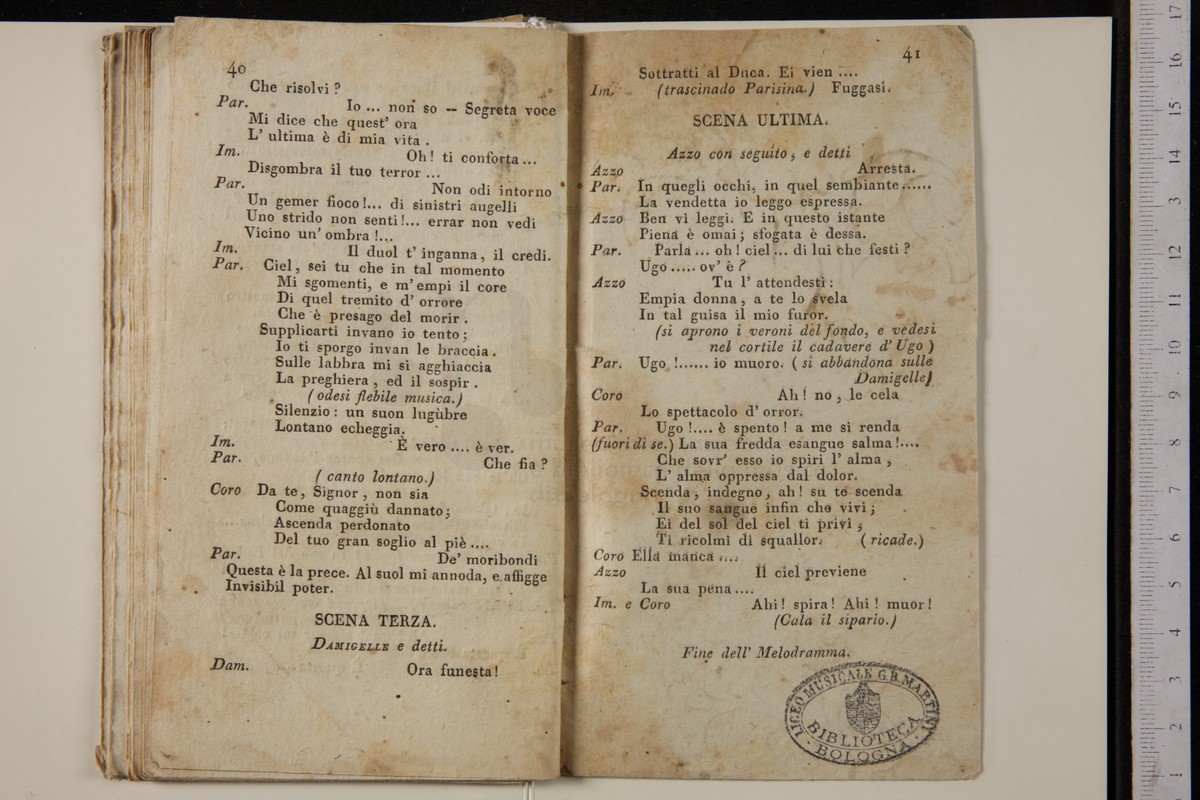 40
Che risolvi ?
Par. Io ... non so — Segreta voce
Mi dice che quest' ora
L' ultima è di mia vita .
Im. Oh ! ti conforta ...
Disgombra il tuo terror ...
Par. Non odi intorno
Un gemer fioco !... di sinistri augelli
Uno strido non senti !... errar non vedi
Vicino un' ombra !...
Im. Il duol t' inganna , il credi.
Par. Ciel , sei tu che in tal momento
Mi sgomenti, e m' empi il core
Di quel tremito d' orrore
Che è presago del morir .
Supplicarti invano io tento ;
Io ti sporgo invan le braccia .
Sulle labbra mi si agghiaccia
La preghiera , ed il sospir .
( odesi flebile musica.)
Silenzio : un suon lugùbre
Lontano echeggia.
Im. È vero .... è ver.
Par. Che fia ?
( canto lontano.)
Coro Da te , Signor , non sia
Come quaggiù dannato ;
Ascenda perdonato
Del tuo gran soglio al piè ....
Par. De' moribondi
Questa è la prece. Al suol mi annoda, e affigge
Invisibil poter.
SCENA TERZA.
DAMIGELLE e detti.
Dam. Ora funesta !
41
Sottratti al Duca. Ei vien ....
Im. (trascinado Parisina.) Fuggasi.
SCENA ULTIMA.
Azzo con seguito , e detti
Azzo Arresta.
Par. In quegli occhi, in quel sembiante......
La vendetta io leggo espressa.
Azzo Ben vi leggi. E in questo istante
Piena è omai ; sfogata è dessa.
Par. Parla ... oh ! ciel ... di lui che festi ?
Ugo ..... ov' è ?
Azzo Tu l' attendesti :
Empia donna , a te lo svela
In tal guisa il mio furor.
(si aprono i veroni del fondo, e vedesi
nel cortile il cadavere d' Ugo )
Par. Ugo !...... io muoro. ( si abbandona sulle
Damigelle)
Coro Ah ! no , le cela
Lo spettacolo d' orror.
Par. Ugo !.... è spento ! a me si renda
(fuori di se.) La sua fredda esangue salma !....
Che sovr' esso io spiri l' alma ,
L' alma oppressa dal dolor.
Scenda , indegno , ah ! su te scenda
Il suo sangue infin che vivi ;
Ei del sol del ciel ti privi ,
Ti ricolmi di squallor. ( ricade.)
Coro Ella manca ....
Azzo Il ciel previene
La sua pena ....
Im. e Coro Ahi ! spira ! Ahi ! muor !
(Cala il sipario.)
Fine dell' Melodramma.
LICEO MUSICALE G.B. MARTINI
BIBLIOTECA
BOLOGNA
17
16
15
14
13
12
11
10
9
8
7
6
5
4
3
2
1